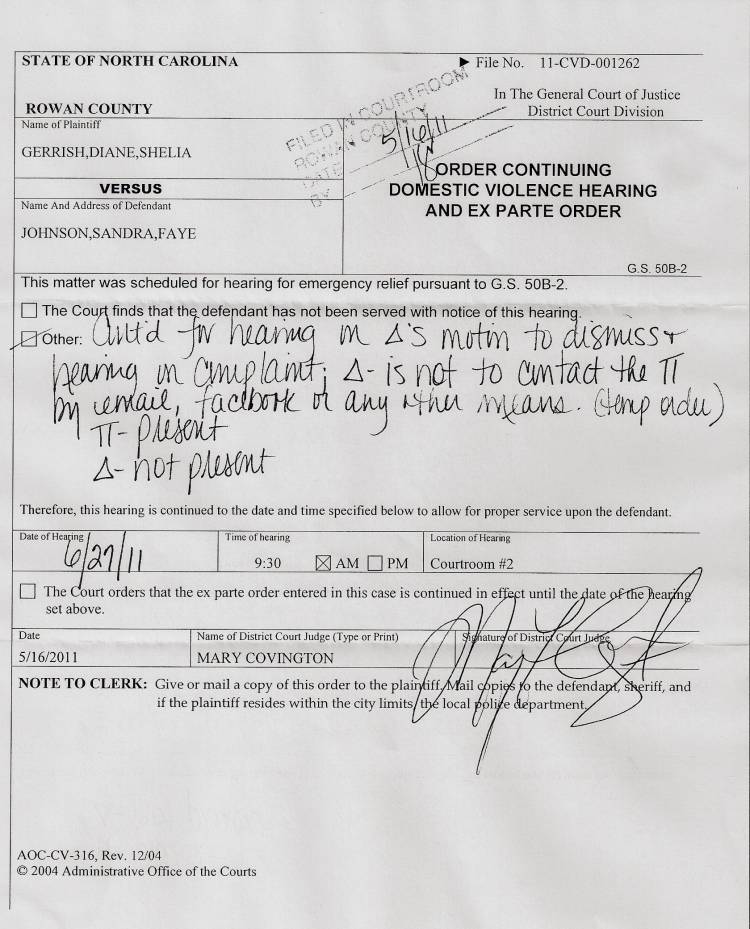 STATE OF NORTH CAROLINA
► File No. 11-CVD-001262
ROWAN COUNTY
In The General Court of Justice
District Court Division
FILED IN COURTROOM
ROWAN COUNTY
DATE 5/16/11
BY
Name of Plaintiff
GERRISH,DIANE,SHELIA
VERSUS
Name And Address of Defendant
JOHNSON,SANDRA,FAYE
ORDER CONTINUING
DOMESTIC VIOLENCE HEARING
AND EX PARTE ORDER
G.S. 50B-2
This matter was scheduled for hearing for emergency relief pursuant to G.S. 50B-2.
The Court finds that the defendant has not been served with notice of this hearing.
Other: Cont'd for hearing on Δ's motion to dismiss +
hearing on complaint; Δ- is not to contact the Π
by email, facebook or any other means. (temp order)
Π- present
Δ- not present
Therefore, this hearing is continued to the date and time specified below to allow for proper service upon the defendant.
Date of Hearing
6/27/11
Time of hearing
9:30 ☒ AM ☐ PM
Location of Hearing
Courtroom #2
The Court orders that the ex parte order entered in this case is continued in effect until the date of the hearing
set above.
Date
5/16/2011
Name of District Court Judge (Type or Print)
MARY COVINGTON
Signature of District Court Judge
NOTE TO CLERK: Give or mail a copy of this order to the plaintiff. Mail copies to the defendant, sheriff, and
if the plaintiff resides within the city limits, the local police department.
AOC-CV-316, Rev. 12/04
© 2004 Administrative Office of the Courts